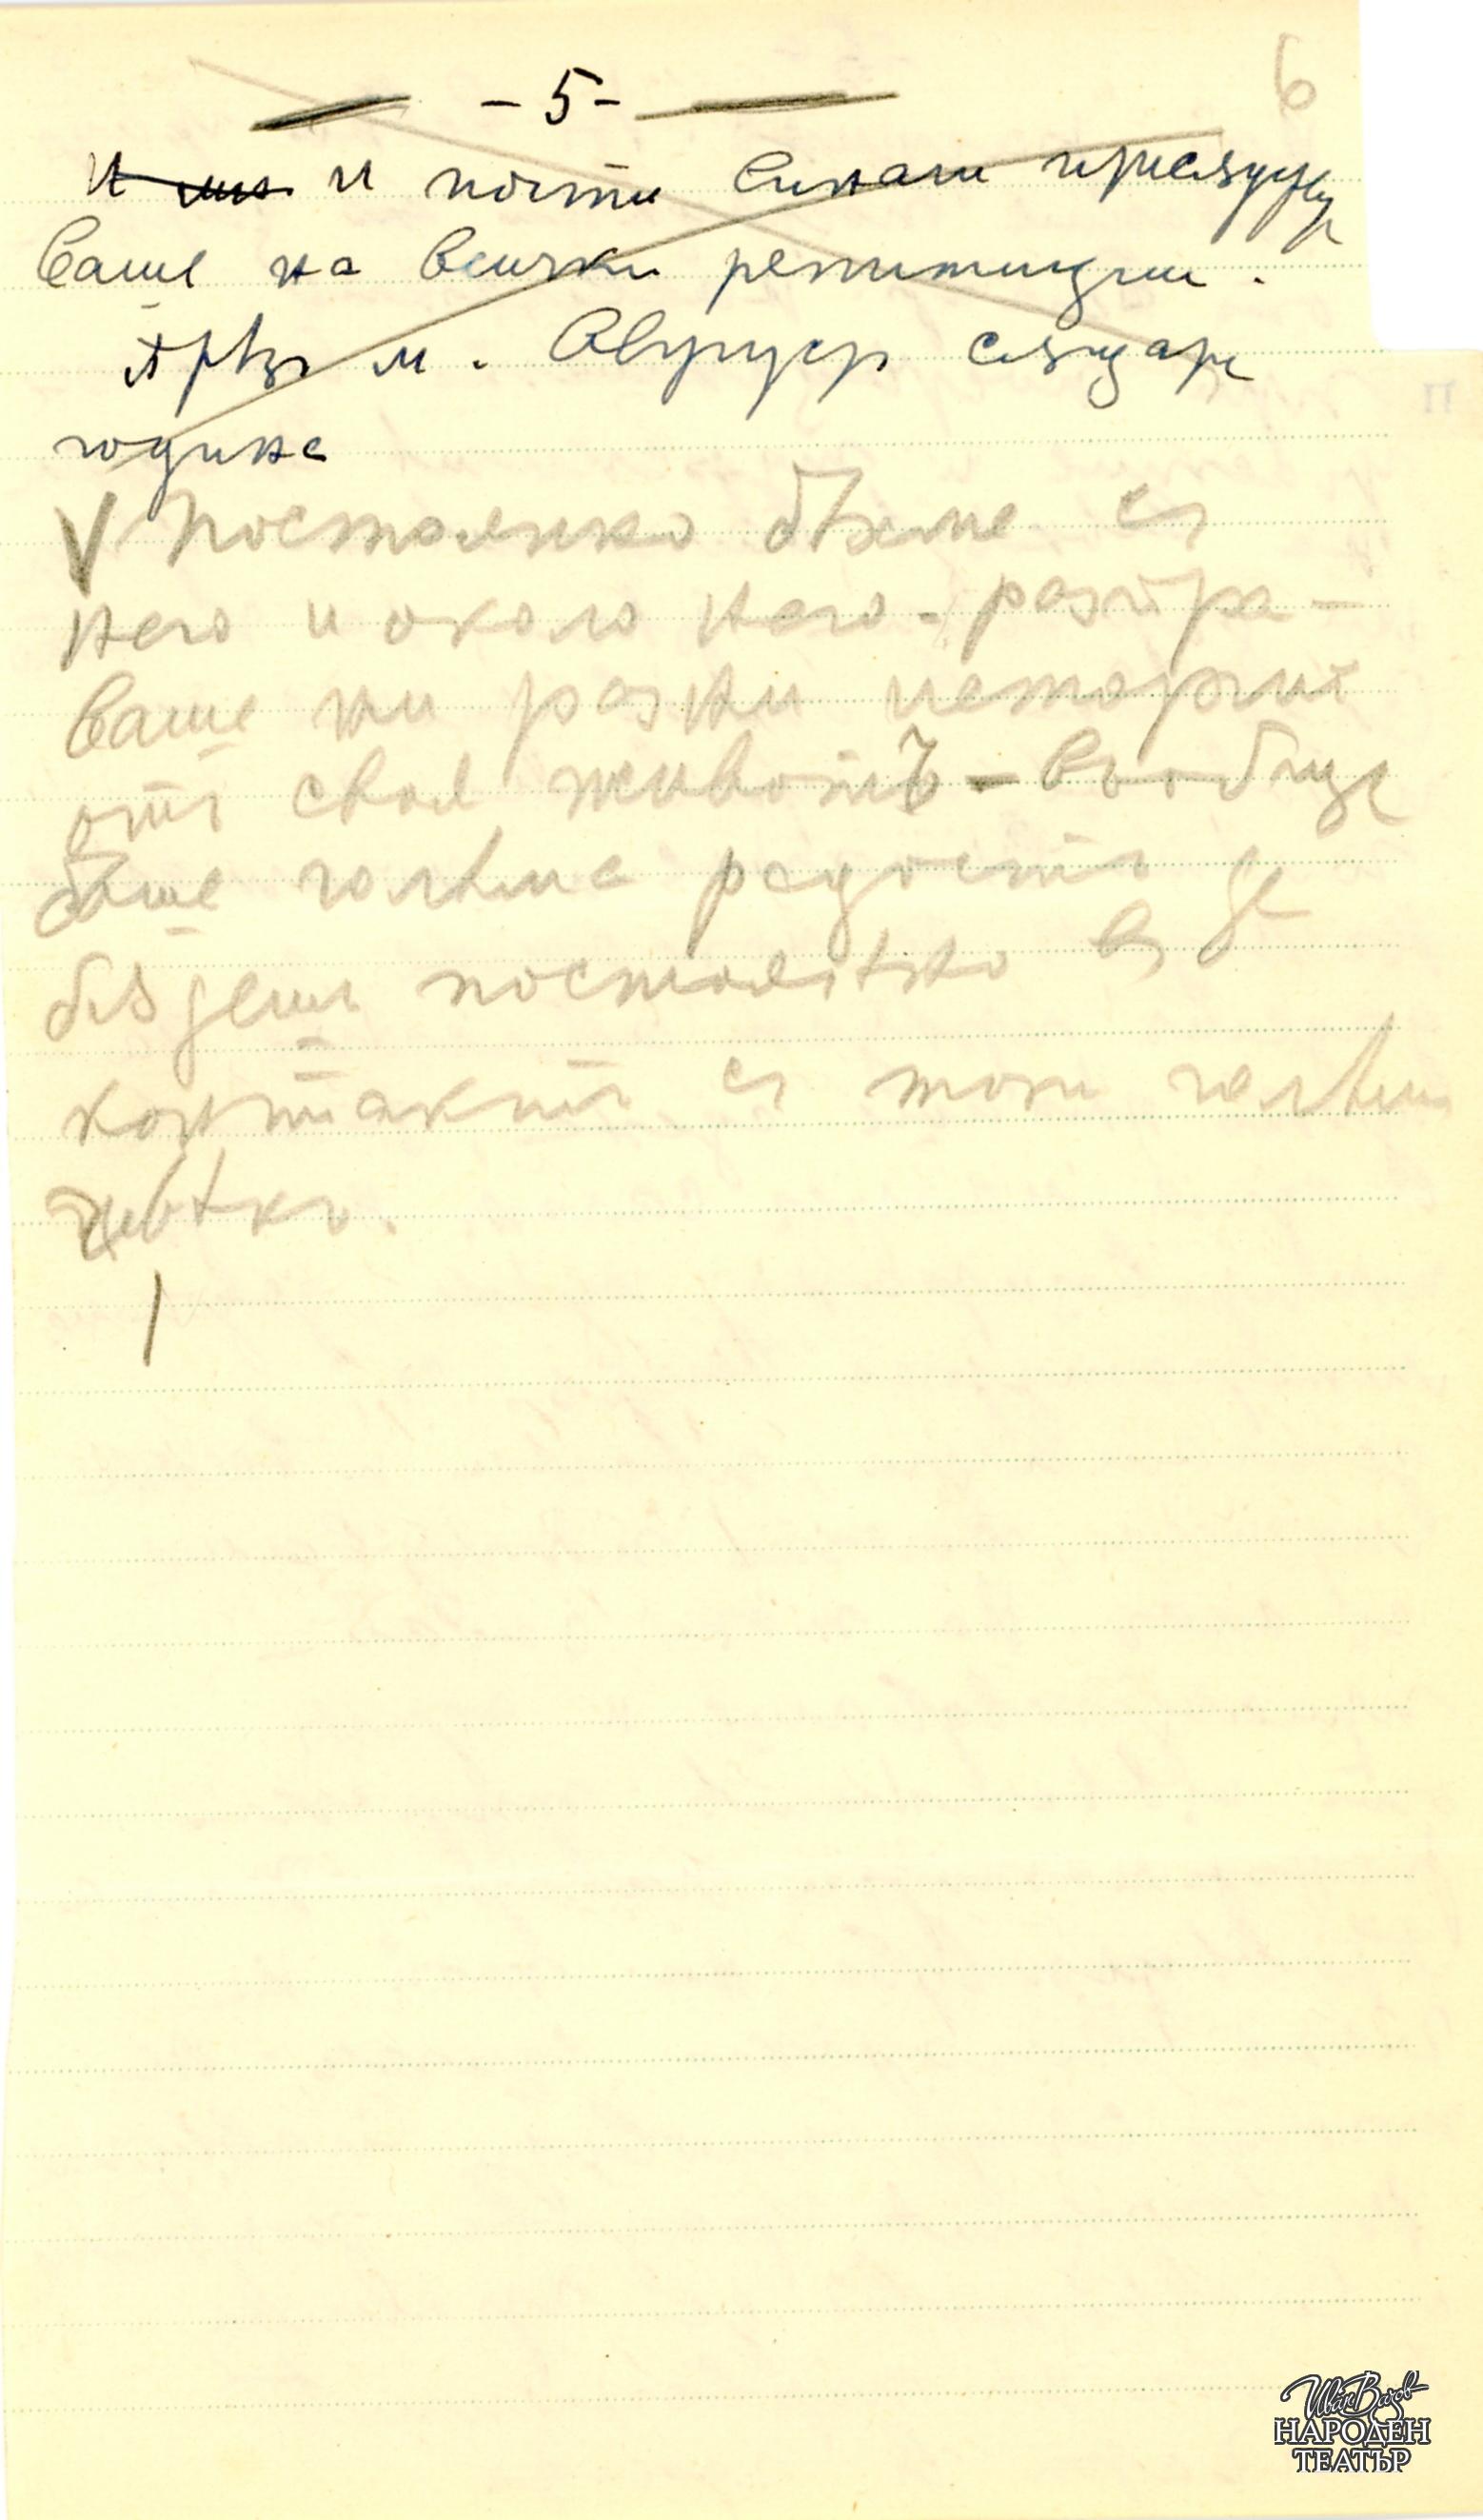 6
- 5 -
и почти винаги присѫтству
ваше на всички репетиции.
Презъ м. Август сѫщата
година
Постоянно бѣхме съ
него и около него - разпра-
ваше ни разни истории
отъ своя животъ - въобще
бѣше голѣма радость да
бѫдешъ постоянно въ
контактъ съ този голѣмъ
човѣкъ.
Иван Вазов
НАРОДЕН
ТЕАТЪР